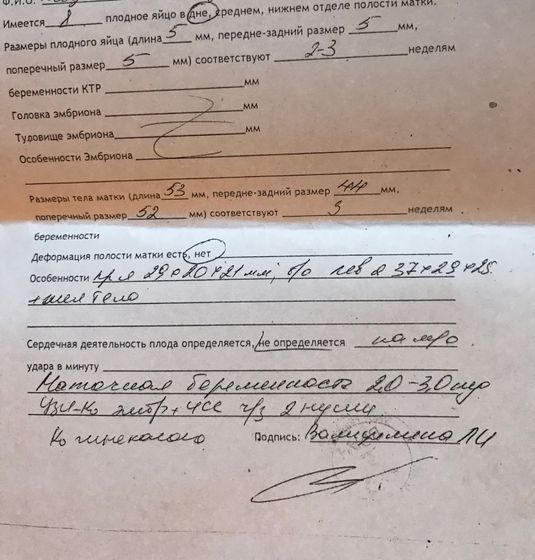 Ф.И.О.
Имеется 1 плодное яйцо в дне, среднем, нижнем отделе полости матки.
Размеры плодного яйца (длина 5 мм, передне-задний размер 5 мм,
поперечный размер 5 мм) соответствуют 2-3 неделям
беременности КТР мм
Головка эмбриона мм
Тудовище эмбриона мм
Особенности Эмбриона
Размеры тела матки (длина 53 мм, передне-задний размер 44 мм,
поперечный размер 52 мм) соответствуют 3 неделям
беременности
Деформация полости матки есть, нет
Особенности пр я 29*20*21 мм, б/о лев я 37*29*25
+ жел тело
Сердечная деятельность плода определяется, не определяется
удара в минуту
Маточная беременность 2,0-3,0 нед
УЗИ-К эмбр + ЧСС ч/з 2 недели
К гинекологу Подпись: